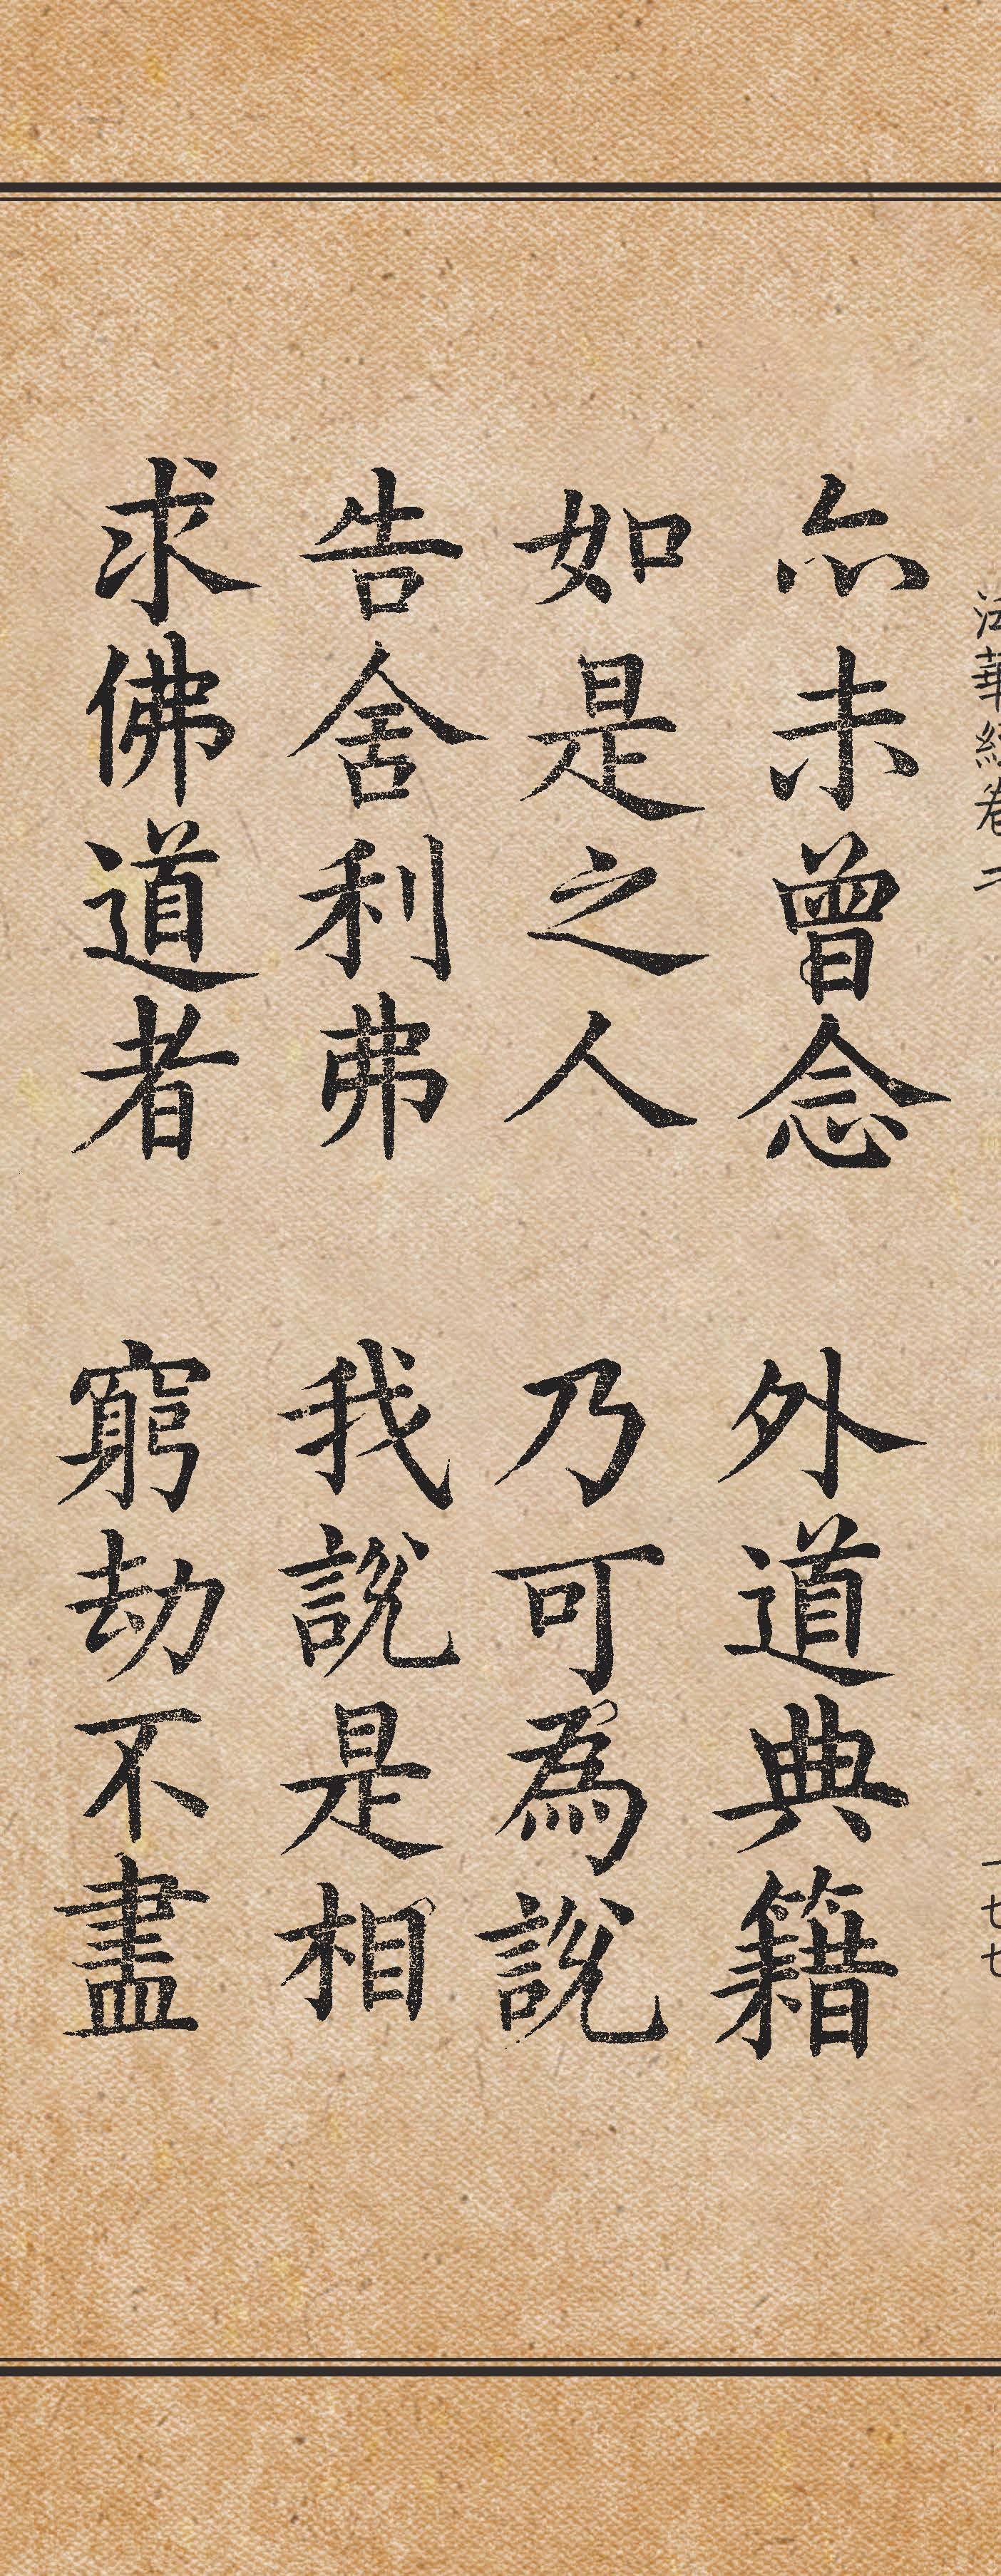 法華經卷二 一七七
亦未曾念 外道典籍
如是之人 乃可為說
告舍利弗 我說是相
求佛道者 窮劫不盡